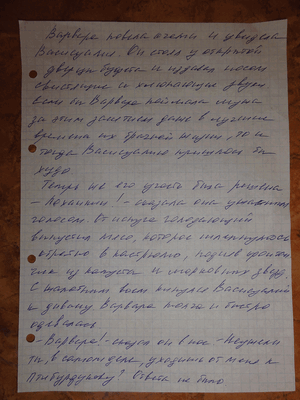 Варвара повела очами и увидела
Васисуалия. Он стоял у открытой
дверцы буфета и издавал носом
свистящие и хлюпающие звуки
Если бы Варвара поймала мужа
за этим занятием даже в лучшие
времена их брачной жизни, то и
тогда Васисуалию пришлось бы
худо.
Теперь же его участь была решена
- Лоханкин! - сказала она ужасным
голосом. От испуга голодающий
выпустил мясо, которое шлепнулось
обратно в кастрюлю, подняв фонтан
чик из капусты и морковных звезд.
С жалобным воем кинулся Васисуалий
к дивану Варвара молча и быстро
одевалась
- Варвара! - сказал он в нос - Неужели
ты, в самом деле, уходишь от меня к
Птибурдукову? Ответа не было